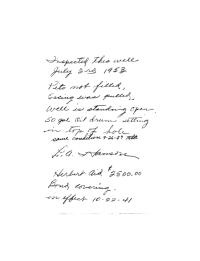 Inspected this well
July 2nd 1958
Pits not filled,
Casing was pulled,
Well is standing open.
50 gal oil drum sitting
in top of hole
same condition 9-26-59
L.A. Hanson
Herbert Aid $2500.00
Bond covering.
in effect 10-22-41